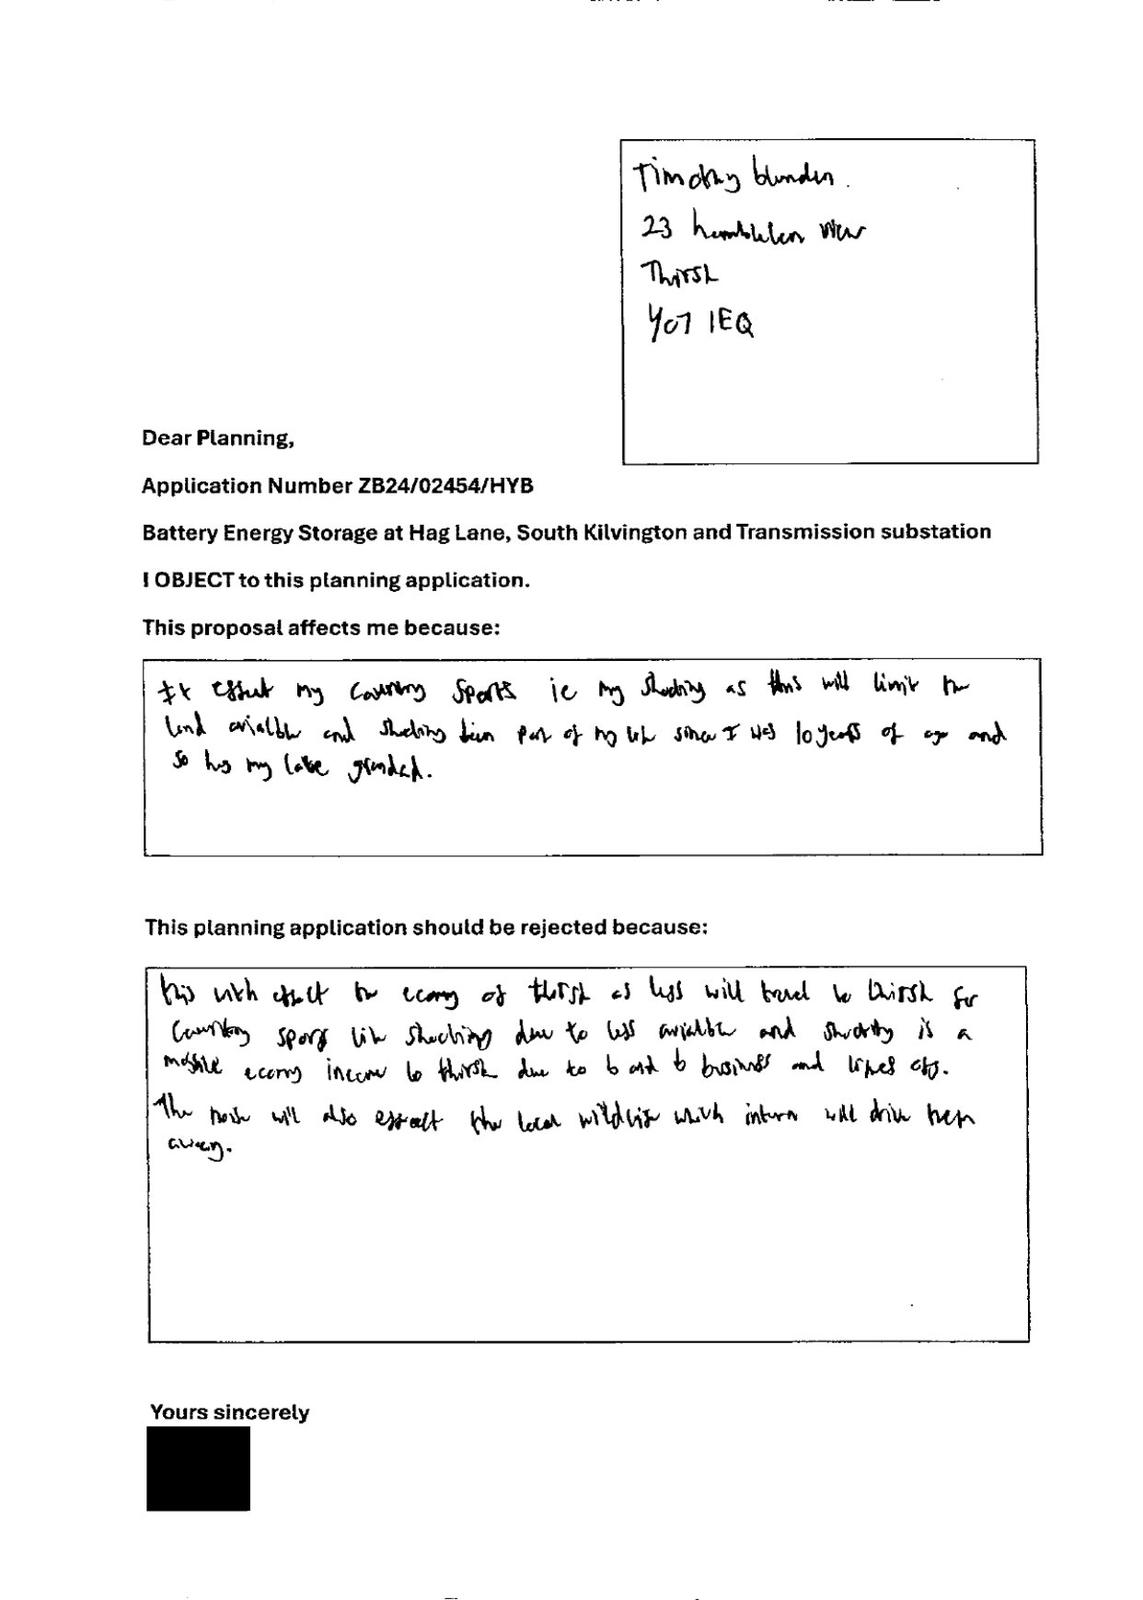 Timothy blunden.
23 hambleton view
Thirsk
YO7 1EQ
Dear Planning,
Application Number ZB24/02454/HYB
Battery Energy Storage at Hag Lane, South Kilvington and Transmission substation
I OBJECT to this planning application.
This proposal affects me because:
It effect my Country Sports ie my shooting as this will limit the
land avialble and shooting been part of my life since I was 10 years of age and
so has my late grandad.
This planning application should be rejected because:
this with effect the econmy of thirsk as less will travel to thirsk for
Country sports like shooting due to less avialble and shooting is a
massive econmy income to thirsk due to b and b business and
The noise will also effect the local wildlife which inturn will drive them
away.
Yours sincerely